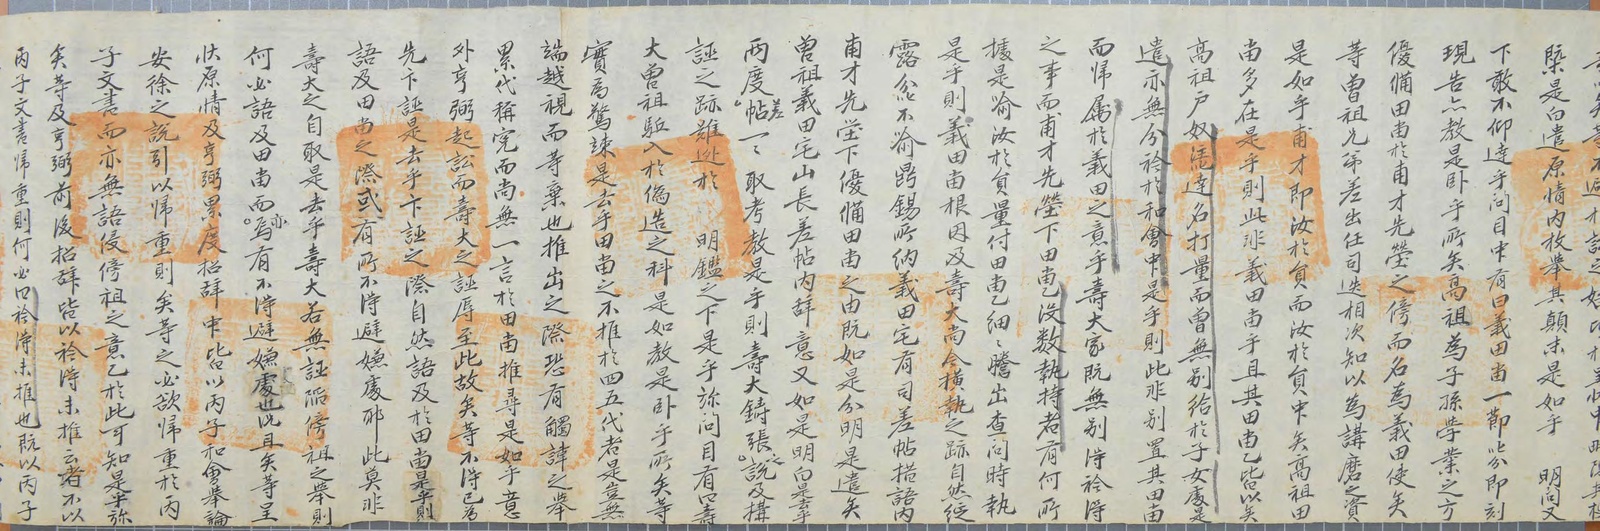 槩是白遣原情內枚擧其顚末是如乎 明問又
下敢不仰達乎問目中有曰義田畓一節叱分卽刻
現告亦敎是臥乎所矣高祖爲子孫學業之方
優備田畓於甫才先塋之傍而名爲義田使矣
等曾祖兄弟差出任司迭相次知以爲講磨之資
是如乎甫才卽汝於負而汝於負中矣高祖田
畓多在是乎則此非義田畓乎且其田畓乙皆以矣
高祖戶奴 達名打量而曾無別給於子女處是
遣亦無分衿於和會中是乎則此非別置其田畓
而歸屬於義田之意乎壽大家旣無別得衿得
之事而甫才先塋下田畓乙沒數執持者有何所
據是喩汝於負量付田畓乙細細謄出查問時執
是乎則義田畓根因及壽大尙今橫執之跡自然綻
露叱分不喩 錫所納義田宅有司差帖措語內
甫才先塋下優備田畓之由旣如是分明是遣矣
曾祖義田宅山長差帖內辭意又如是明白是乎
兩度差帖一一取考敎是乎則壽大鑄張之說及搆
誣之跡難逃於 明鑑之下是乎旀問目有曰壽
大曾祖驅入於僞造之科是如敎是臥乎所矣等
實爲驚竦是去乎田畓之不推於四五代者是豈無
端越視而等棄也推出之際恐有觸諱之擧
累代稱寃而尙無一言於田畓推尋是如乎意
外亨弼起訟而壽大之誣辱至此故矣等不得已爲
先卞誣是去乎卞誣之際自然語及於田畓是乎則
語及田畓之際或有所不得避嫌處耶此莫非
壽大之自取是去乎壽大若無誣陷傍祖之擧則
何必語及田畓而亦有不得避嫌處也況且矣等呈
狀原情及亨弼累度招辭中皆以丙子和會擧論
安徐之說引以歸重則矣等之必欲歸重於丙
子文書而亦無語侵傍祖之意乙於此可知是乎旀
矣等及亨弼前後招辭皆以衿得未推云者不以
丙子文書歸重則何必曰衿得未推也旣以丙子